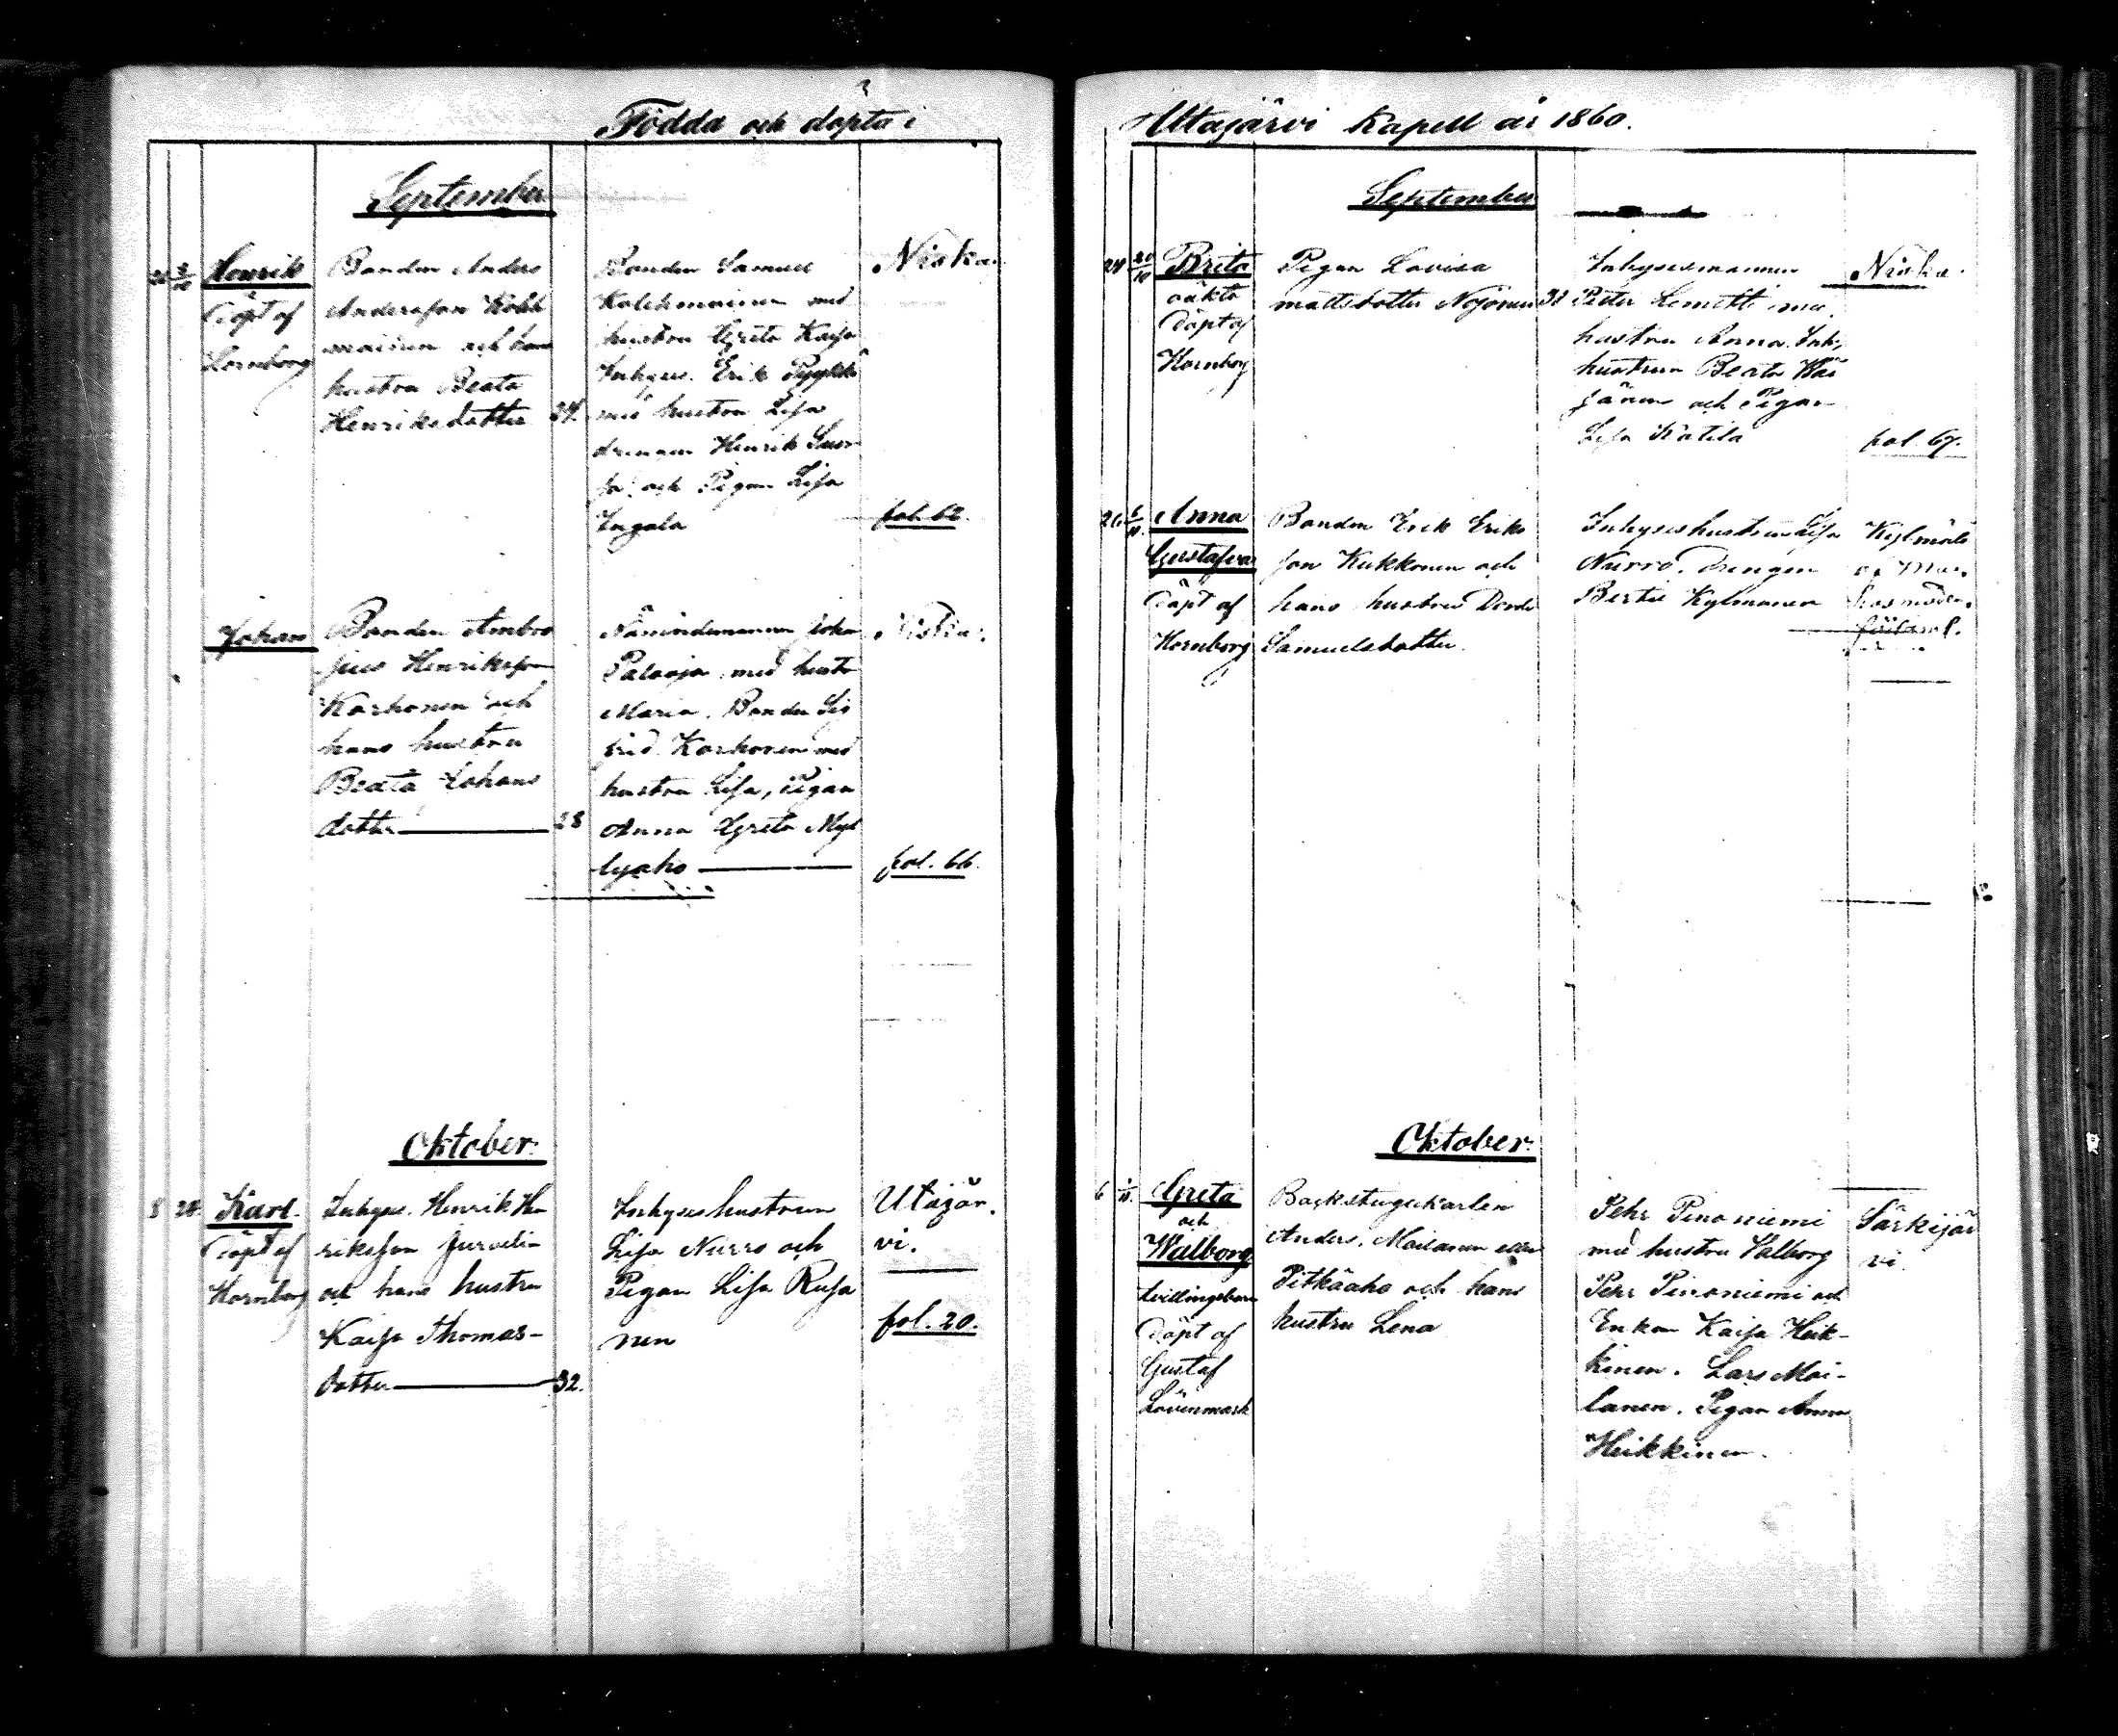 Födda och döpta i
September
Henrik
Döpt af
Bonden Anders
Andersson
och hans
hustru Beata
Henriksdotter 24.
Bonden Samuel
med
hustru Greta Kajsa
Inhyses. Erik
med hustru Lisa
drengen Henrik
och Pigan Lisa
Ingala
Niska
fol. 62.
Johan
Bonden Ambro
sius Henriksson
Karhonen och
hans hustru
Beata Johans
dotter 28
Nämndemannen Johan
med hustr
Maria. Bonden Sig
frid Karhonen med
hustru Lisa, Pigan
Anna Greta Myl
lyaho
Niska.
fol. 66.
Oktober.
8 28. Karl.
Döpt af
Hornborg
Inhyses. Henrik Hen
riksson
och hans hustru
Kaisa Thomas-
dotter 32.
Inhyses hustrun
Lisa Nurro och
Pigan Lisa Rusa
nen
Utajär.
vi.
fol. 20.
Utajärvi Kapell år 1860.
September
24 20/10 Brita
oäkta
Döpt af
Hornborg
Pigan Lovisa
Mattsdotter
Inhysesmannen
Peter Lemetti
hustru Anna. Inh.
hustrun Beata
och Pigan
Lisa Katila
Niska.
fol. 67.
26 Anna
Gustafva
Döpt af
Hornborg
Bonden Erik Eriks
son Kukkonen och
hans hustru
Samuelsdotter.
Inhyseshustrun Lisa
Nurro. Drengen
Bertil Kylmänen
Oktober.
6 Greta
och
Walborg
tvillingebarn
Döpt af
Gustaf
Lövenmark
Backstugukarlen
Anders. Moilanen eller
Pitkäaho och hans
hustru Lena
Pehr Pinoniemi
med hustru Valborg
Pehr Pinoniemi och
Enkan Kaisa Heik-
kinen. Lars Moi-
lanen. Pigan Anna
Heikkinen.
Särkijär
vi.